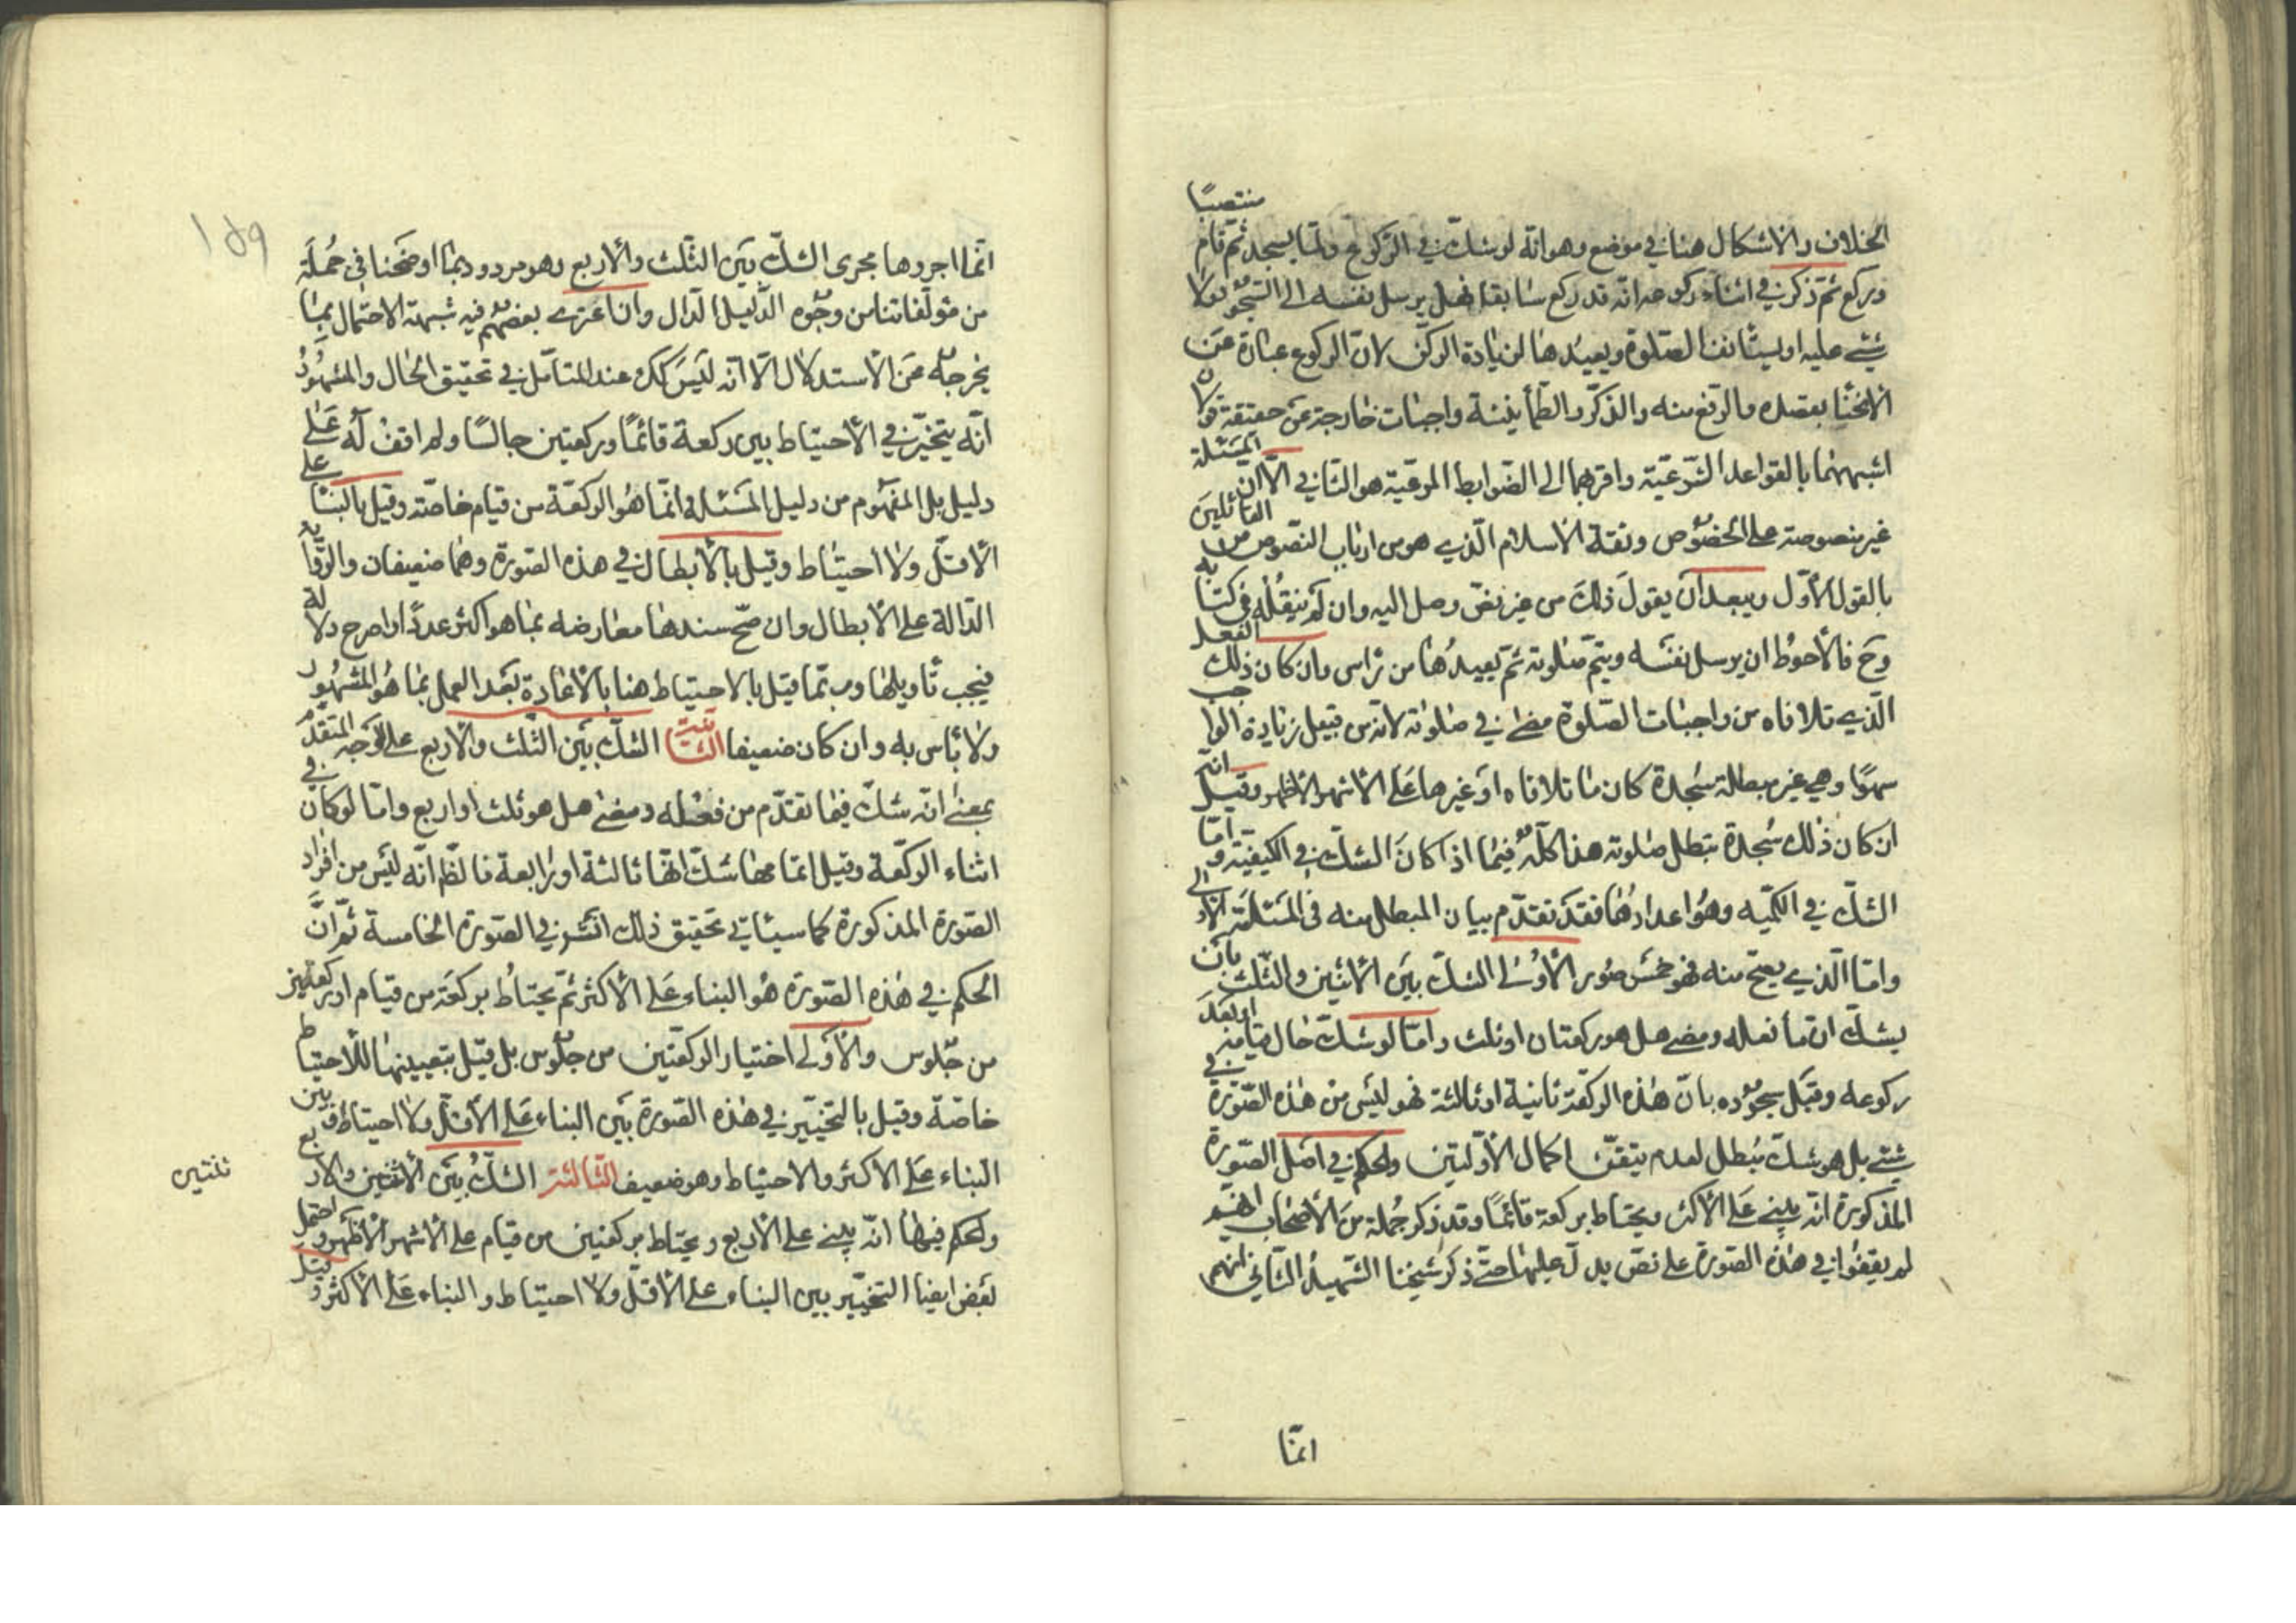 الخلاف والاشكال هنا في موضع وهو انّه لو شكّ في الركوع ولمّا يسجد ثمّ قام منتصبًا
وركع ثمّ ذكر في اثناء ركوعه انّه قد ركع سابقا فهل يرسل نفسه الى السّجود ولا
شيئ عليه او يستأنف الصّلوة ويعيدها لزيادة الركن لانّ الركوع عبارة عن
الانحناء بقصده والرّفع منه والذّكر والطّمأنينة واجبات خارجة عن حقيقته قولان
اشبههما بالقواعد الشّرعيّة واقربهما الى الضّوابط المرعيّة هو الثّاني الّا انّ المسئلة
غير منصوصة على الخصوص وثقة الاسلام الّذي هو من ارباب النّصوص من القائلين
بالقول الأوّل ويبعد أن يقول ذلك من غير نصّ وصل اليه وان لم ينقله في كتابه
وح فالأحوط ان يرسل نفسه ويتمّ صلوته ثمّ يعيدها من رأس وان كان ذلك الفعل
الّذي تلافاه من واجبات الصّلوة مضى في صلوته لانّه من قبيل زيادة الواجب
سهوًا وهي غير مبطلة سجدة كان ما تلافاه أو غيرها على الاشهر الاظهر وقيل انّه
ان كان ذلك سجدة بتطل صلوته هذا كلّه فيما اذا كان الشكّ في الكيفيّة وأمّا
الشكّ في الكمّيه وهو اعدادها فقد تقدّم بيان المبطل منه في المسئلة الأولى
وامّا الّذي يصحّ منه فهو خمس صور الأولى الشكّ بين الأثنين والثّلث بأن
يشكّ انّ ما فعله ومضى هل هو ركعتان او ثلث وامّا لو شكّ حال قيامه او بعد
ركوعه وقبل سجوده بانّ هذه الركعة ثانية او ثالثة فهو ليس من هذه الصّورة في
شيئ بل هو شكّ مبطل لعدم تيقّن اكمال الأوّلتين والحكم في اصل الصّورة
المذكورة انّه يبني على الأكثر ويحتاط بركعة قائمًا وقد ذكر جملة من الأصحاب انهم
لم يقفوا في هذه الصّورة على نصّ يدلّ عليها حتّى ذكر شيخنا الشّهيد الثّاني انهم
انمّا
١٥٩
انمّا اجروها مجرى الشكّ بين الثلث والاربع وهو مردود بما اوضحنا في جملة
من مؤلّفاتنا من وجوه الدّليل الدّال وان اعترى بعضهم فيه شبهة الاحتمال بما
يخرجه عن الاستدلال الّا انّه ليس كك عند المتأمّل في تحقيق الحال والمشهور
انّه يتخيّر في الأحتياط بين ركعة قائمًا وركعتين جالسًا ولم اقف له على
دليل بل المفهوم من دليل المسئلة انمّا هو الركعة من قيام خاصّة وقيل بالبناء على
الأقلّ ولا احتياط وقيل بالأبطال في هذه الصّورة وهما ضعيفان والرّواية
الدّالة على الأبطال وان صحّ سندها معارضه بما هو اكثر عددًا واصرح دلالة
فيجب تأويلها وربّما قيل بالاحتياط هنا بالأعادة بعد العمل بما هو المشهور
ولا بأس به وان كان ضعيفا الثّانية الشكّ بين الثلث والاربع على الوجه المتقدّم
بمعنى انّه شكّ فيما تقدّم من فعله ومضى هل هو ثلث او اربع وامّا لو كان في
اثناء الركعة وقيل اتمامها شكّ انّها ثالثة او رابعة فالظّم انّه ليس من افراد
الصّورة المذكورة كما سيأتي تحقيق ذلك انشر في الصّورة الخامسة ثمّ انّ
الحكم في هذه الصّورة هو البناء على الأكثر ثمّ يحتاط بركعة من قيام او ركعتين
من جلوس والأولى اختيار الركعتين من جلوس بل قيل بتعيينها للاحتياط
خاصّة وقيل بالتخيير في هذه الصّورة بين البناء على الأقلّ ولا احتياط وبين
البناء على الاكثر والاحتياط وهو ضعيف الثّالثة الشكّ بين الأثنين والاربع
ثلثين
والحكم فيها انّه يبني على الأربع ويحتاط بركعتين من قيام على الأشهر الأظهر واحتمل
بعض ايضا التخيير بين البناء على الأقلّ ولا احتياط والبناء على الأكثر و قيل